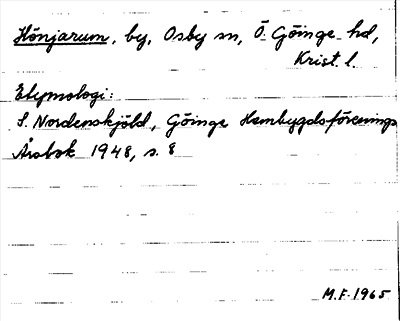 Hönjarum, by, Osby sn, Ö. Göinge hd,
Krist. l.
Etymologi:
S. Nordenskjöld, Göinge Hembygdsförenings
Årsbok 1948, s. 8
M.F. 1965